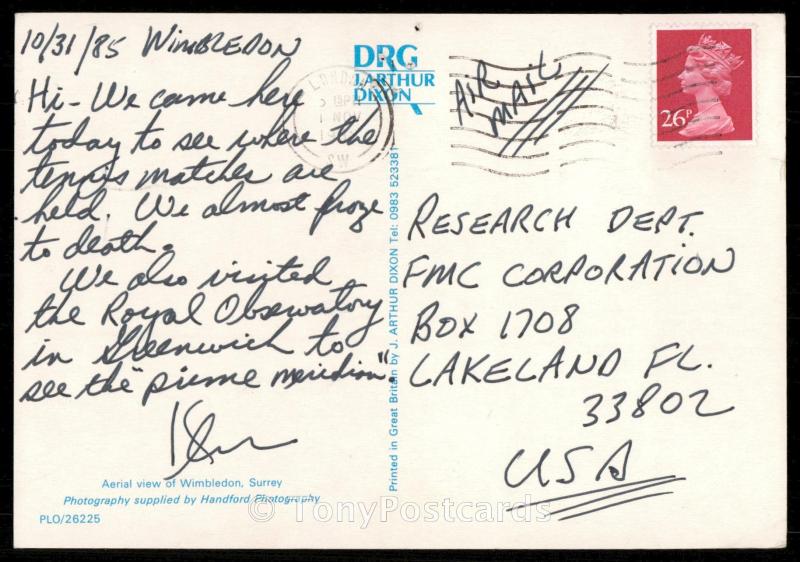 10/31/85 Wimbledon
Hi - We came here
today to see where the
tennis matches are
held. We almost froze
to death.
We also visited
the Royal Observatory
in Greenwich to
see the "prime meridian".
Aerial view of Wimbledon, Surrey
Photography supplied by Handford Photography
PLO/26225
© TonyPostcards
DRG
J. ARTHUR
DIXON
Printed in Great Britain by J. ARTHUR DIXON Tel: 0983 523381
LONDON
PM
1 NOV
SW
AIR
MAIL
26P
RESEARCH DEPT.
FMC CORPORATION
BOX 1708
LAKELAND FL.
33802
USA